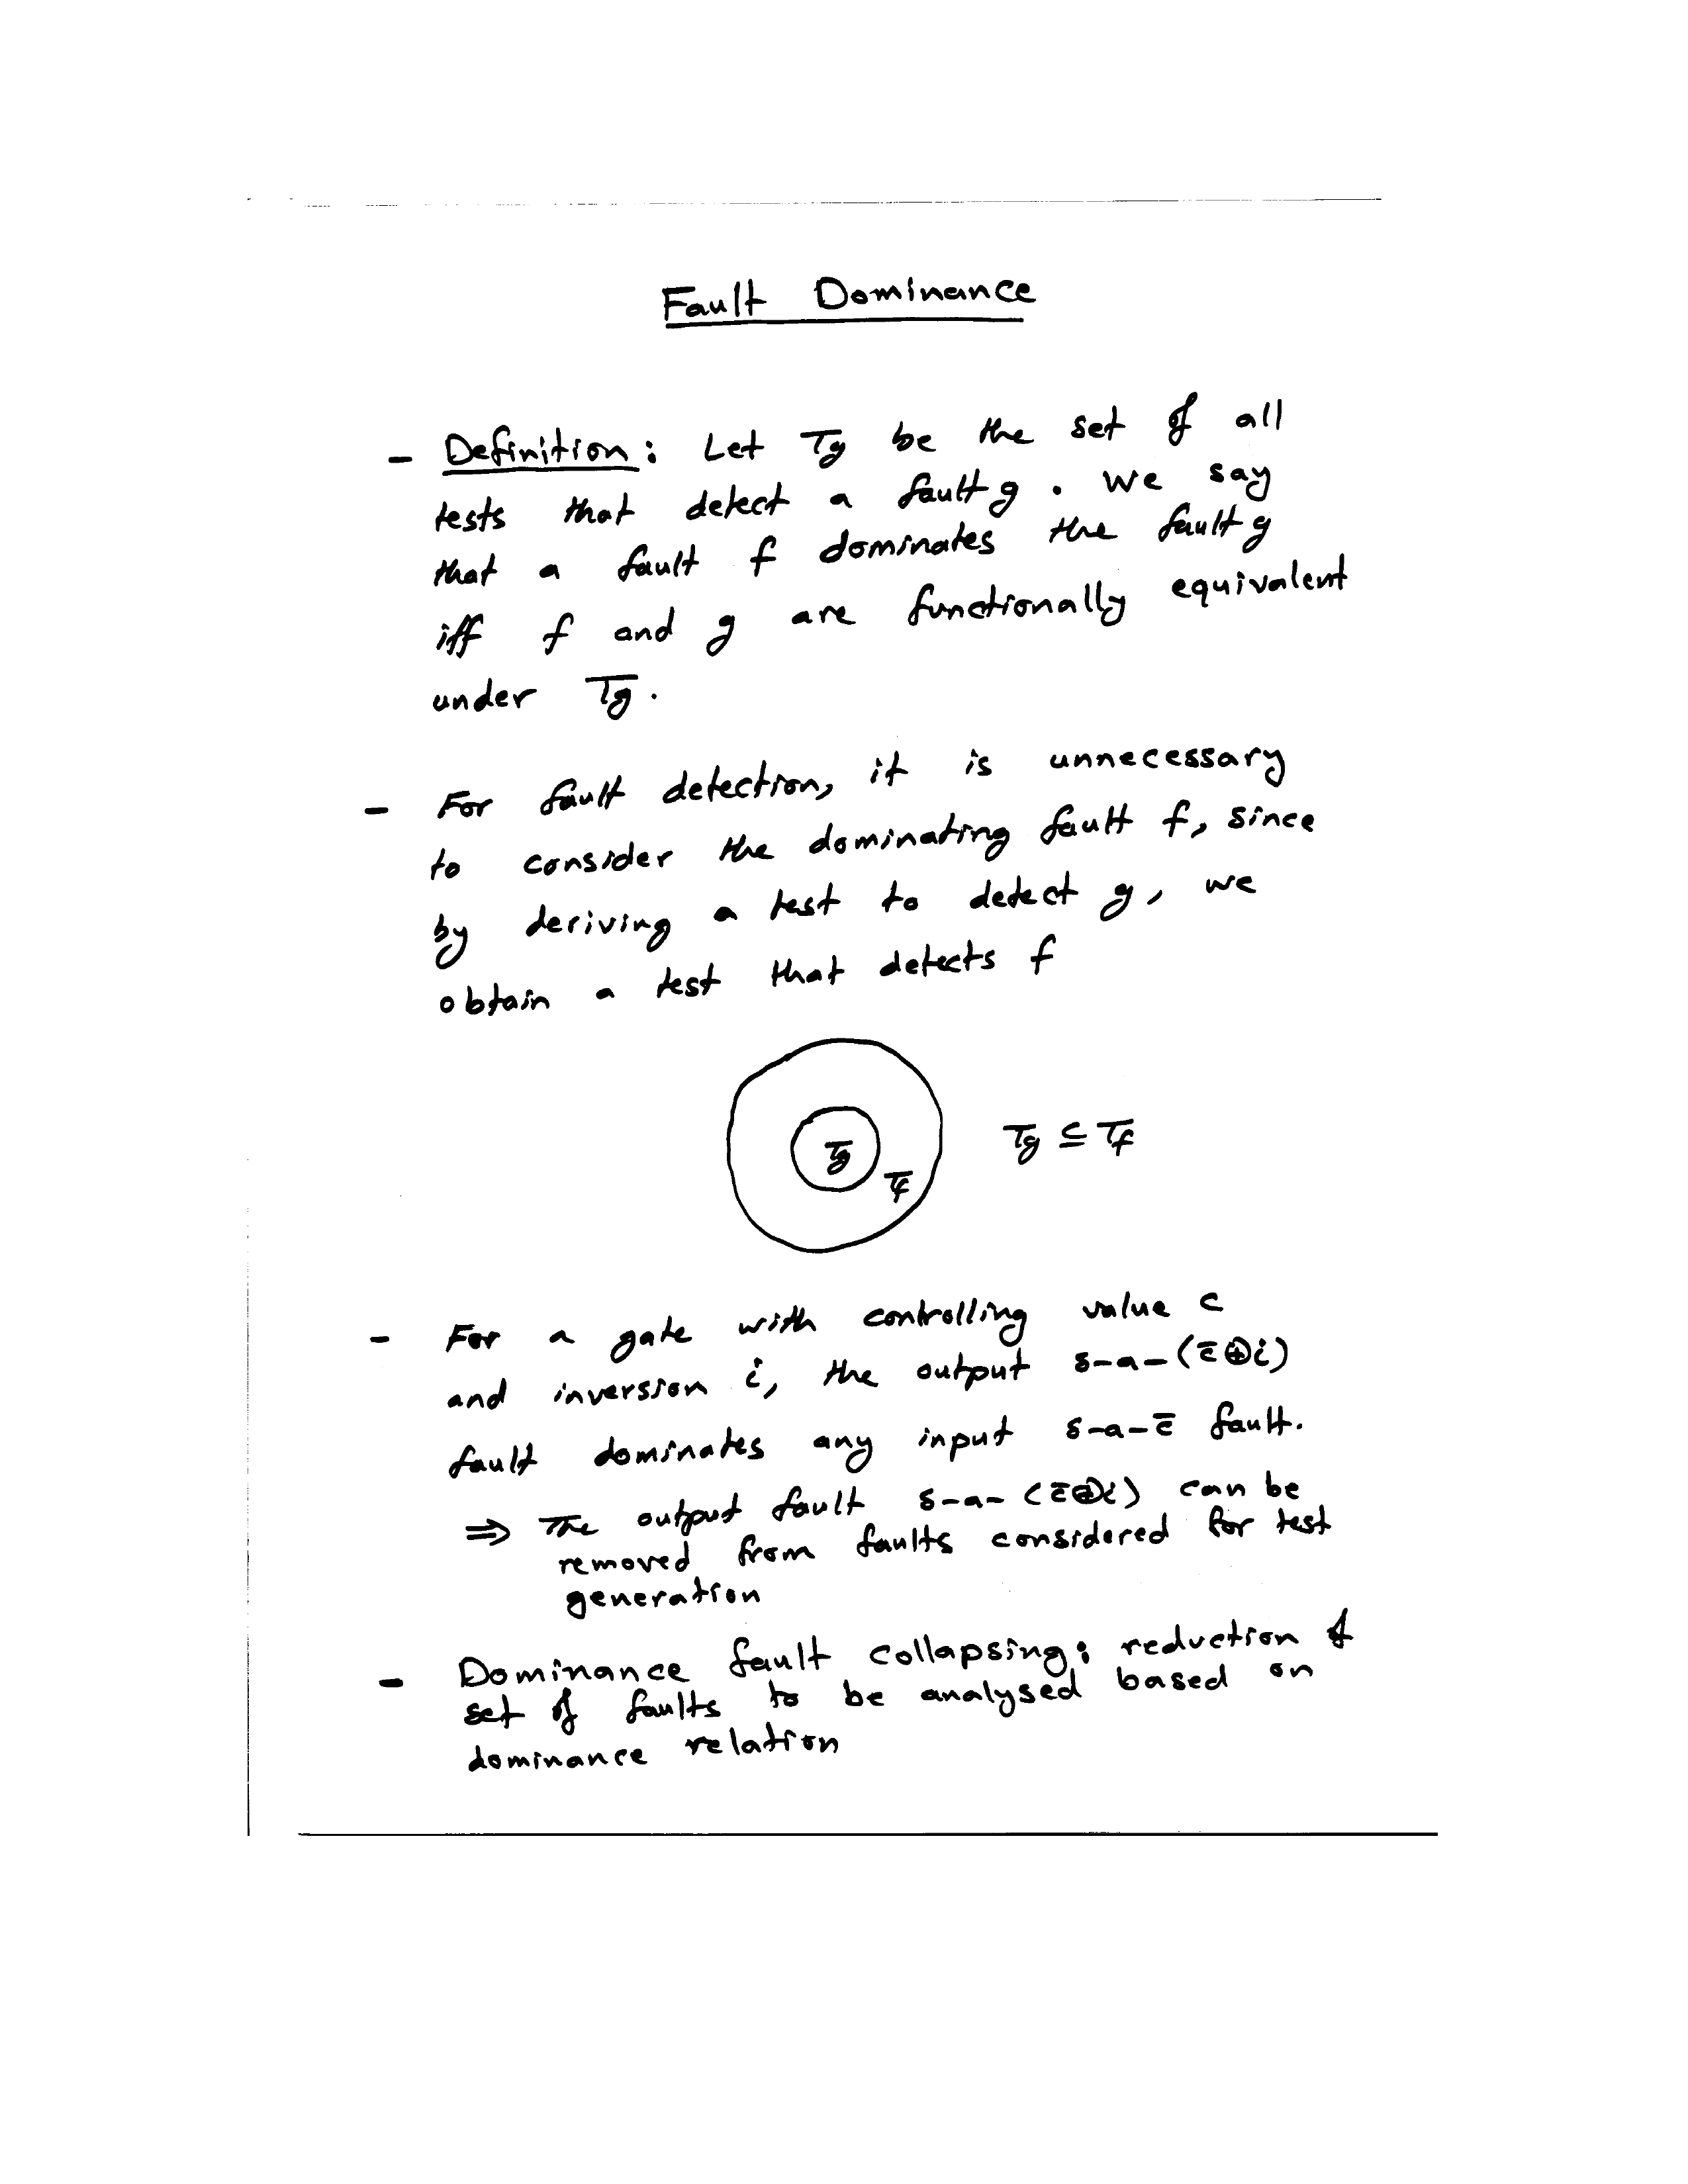 Fault Dominance
- Definition: Let Tg be the set of all
tests that detect a fault g. We say
that a fault f dominates the fault g
iff f and g are functionally equivalent
under Tg.
- For fault detection, it is unnecessary
to consider the dominating fault f, since
by deriving a test to detect g, we
obtain a test that detects f
Tg Tf Tg ⊆ Tf
- For a gate with controlling value c
and inversion i, the output s-a-(c̄⊕i)
fault dominates any input s-a-c̄ fault.
⇒ The output fault s-a-(c̄⊕i) can be
removed from faults considered for test
generation
- Dominance fault collapsing: reduction of
set of faults to be analysed based on
dominance relation